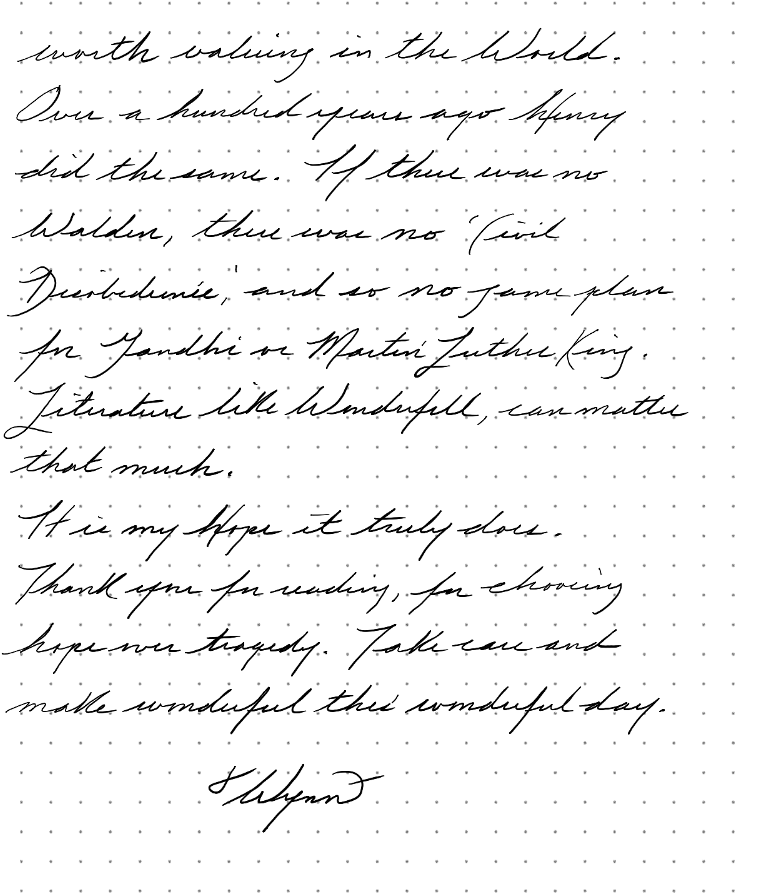 worth valuing in the World.
Over a hundred years ago Henry
did the same. If there was no
Walden, there was no 'Civil
Disobedience,' and so no game plan
for Gandhi or Martin Luther King.
Literature like Wonderfell, can matter
that much.
It is my Hope it truly does.
Thank you for reading, for choosing
hope over tragedy. Take care and
make wonderful this wonderful day.
Wynn